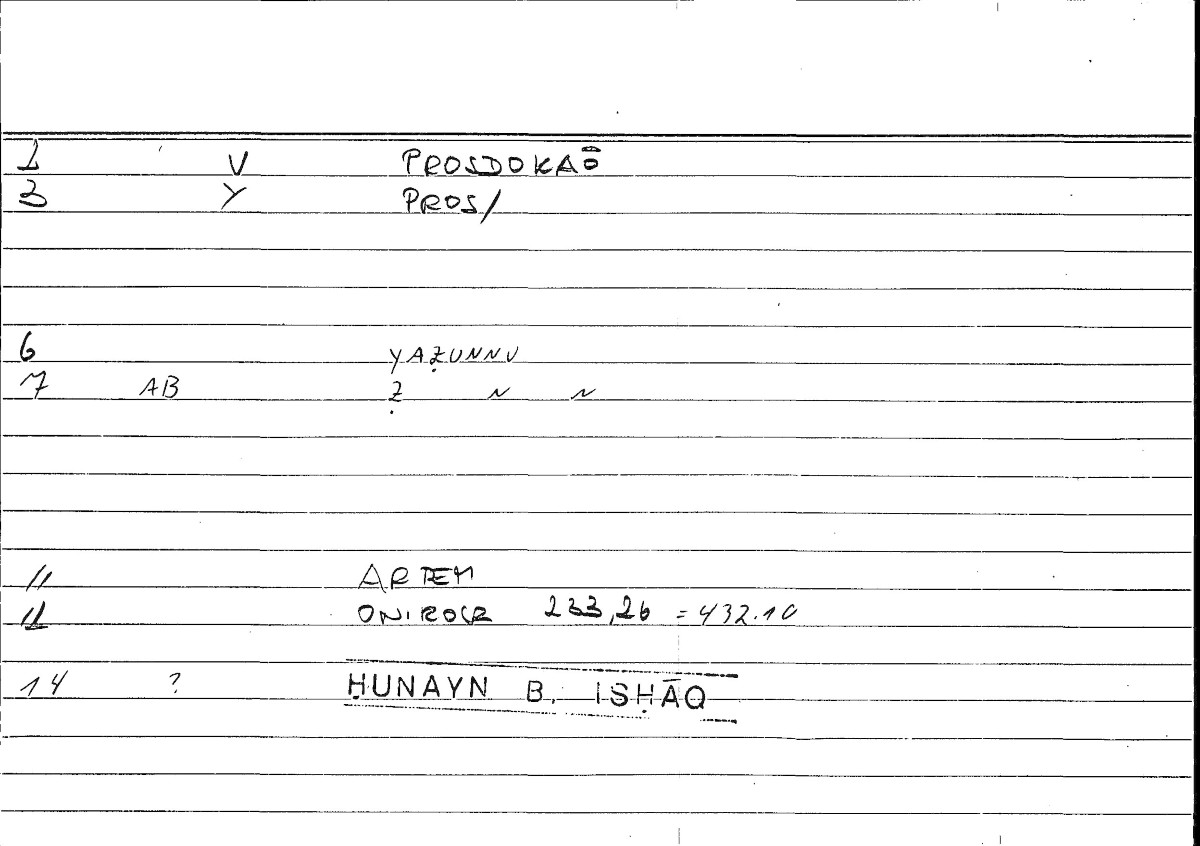 1 V PROSDOKAŌ
3 Y PROS/
6 YAẒUNNU
7 AB Ẓ N N
11 ARTEM
12 ONIROCR 233,26 = 432.10
14 ? ḤUNAYN B. ISḤĀQ